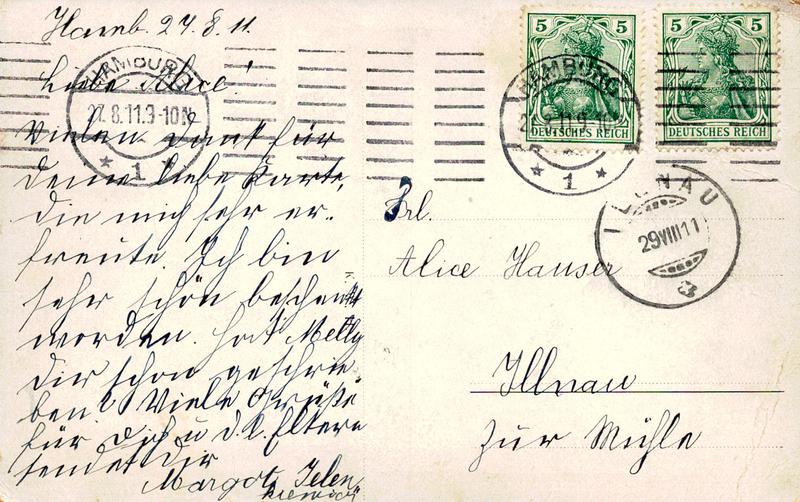 Hamb. 27.8.11.
Liebe Alice!
Vielen Dank für
Deine liebe Karte,
die mich sehr er-
freute. Ich bin
sehr schön beschenkt
worden. Hat Melly
Dir schon geschrie
ben? Viele Grüße
für Dich u. d. l. Eltern
sendet Dir
Margot
HAMBURG
27.8.11.9-10N.
* 1 *
5 5
DEUTSCHES REICH
5 5
DEUTSCHES REICH
HAMBURG
* 1 *
ILLNAU
29 VIII 11
Frl.
Alice Hauser
Illnau
Zur Mühle